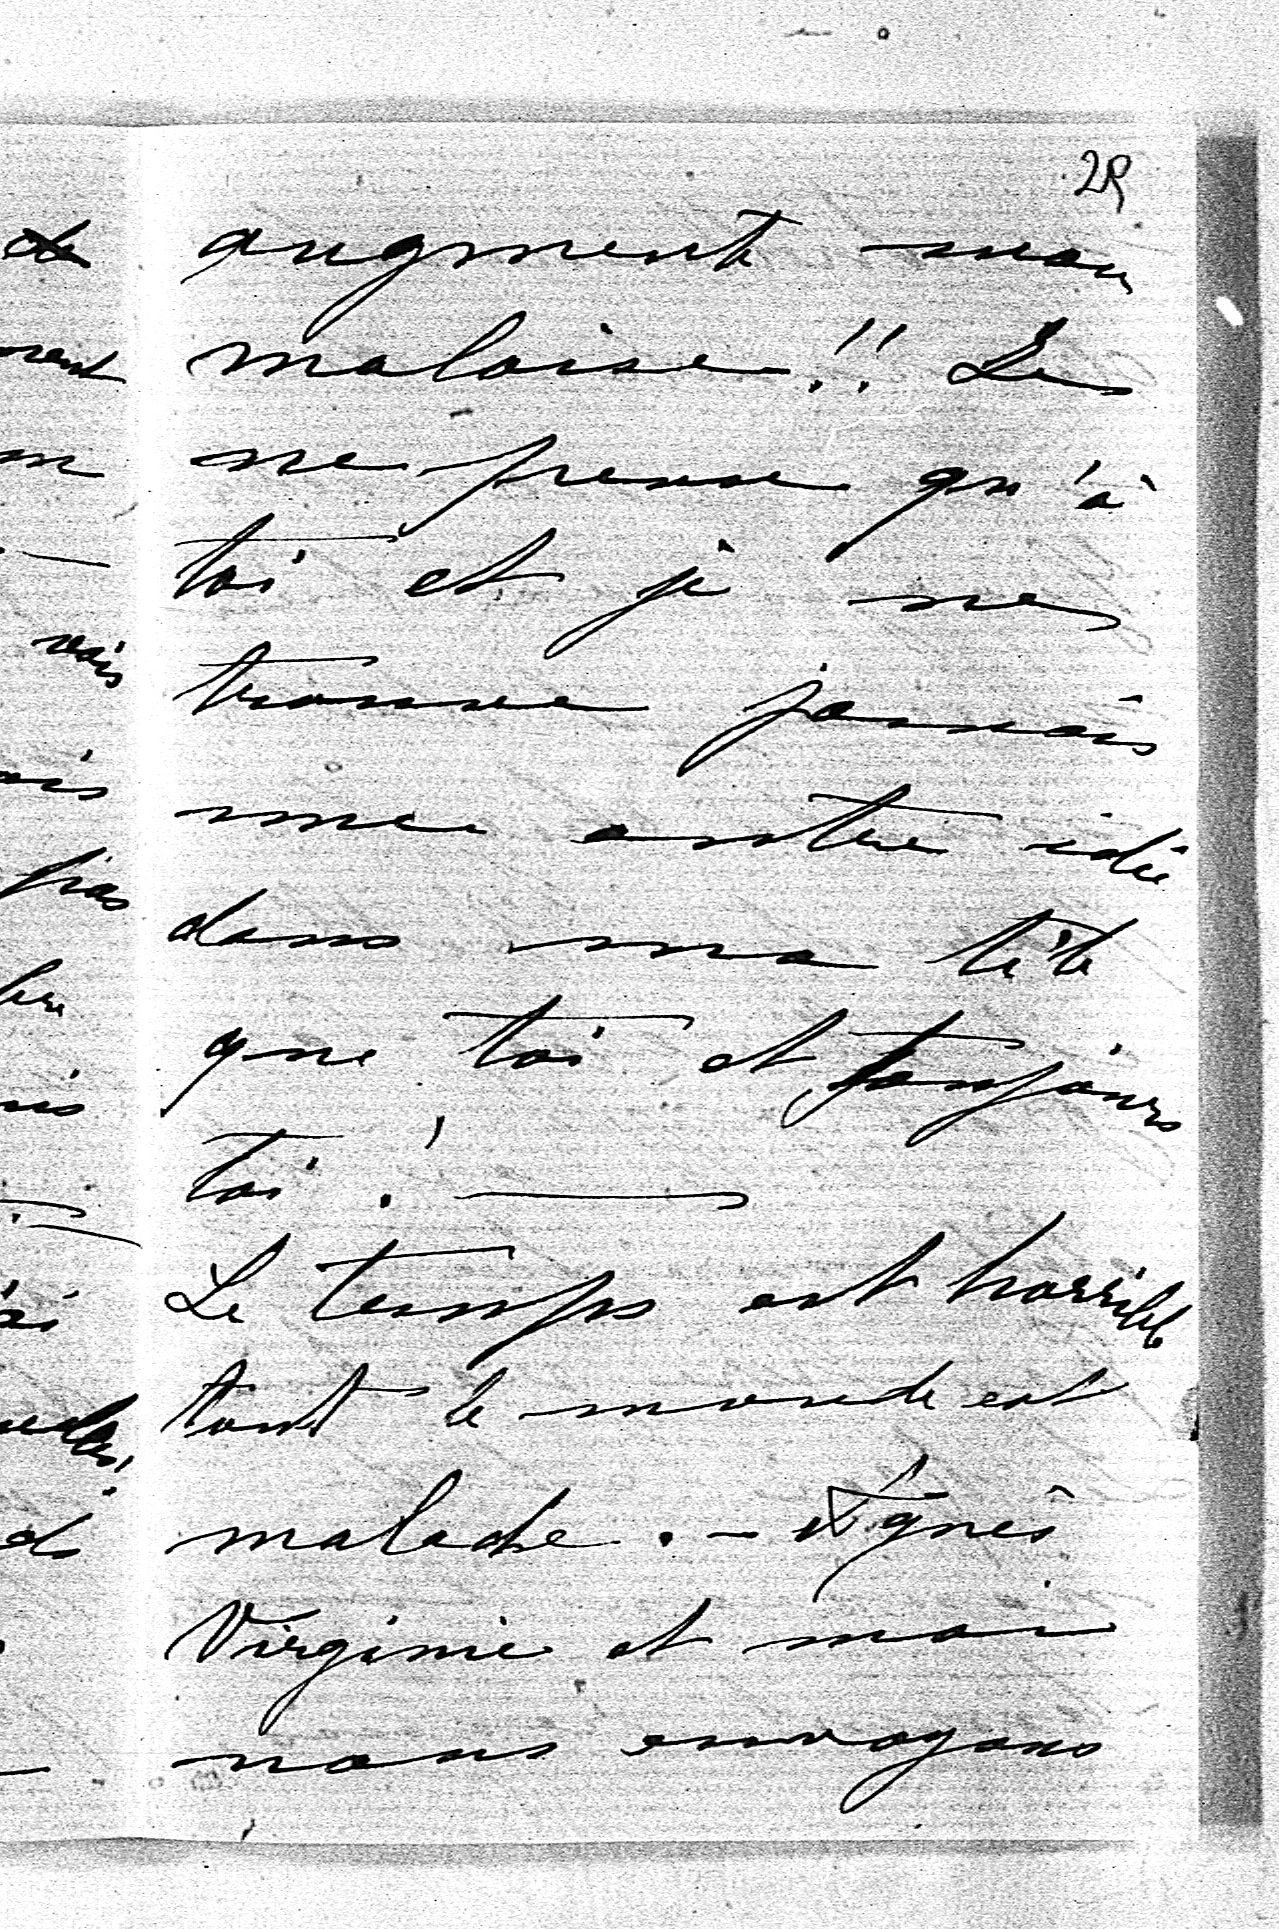 augmente mon
malaise!! Je
ne pense qu'à
toi et je ne
trouve jamais
une autre idée
dans ma tête
que toi et toujours
toi!
Le temps est horrible
tout le monde est
malade. — Agnès
Virginie et moi
nous envoyons